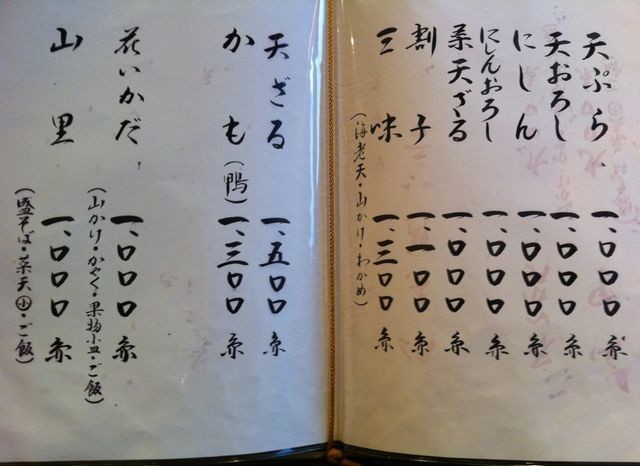 天ぷら、一、〇〇〇
天おろし 一、〇〇〇
にしん 一、〇〇〇
にしんおろし 一、〇〇〇
菜天ざる 一、〇〇〇
割子 一、一〇〇
三味 一、三〇〇
(海老天・山かけ・わかめ)
天ざる 一、五〇〇
かも(鴨) 一、三〇〇
花いかだ、一、〇〇〇
(山かけ・かやく・果物小皿・ご飯)
山里 一、〇〇〇
(盛そば・菜天小・ご飯)